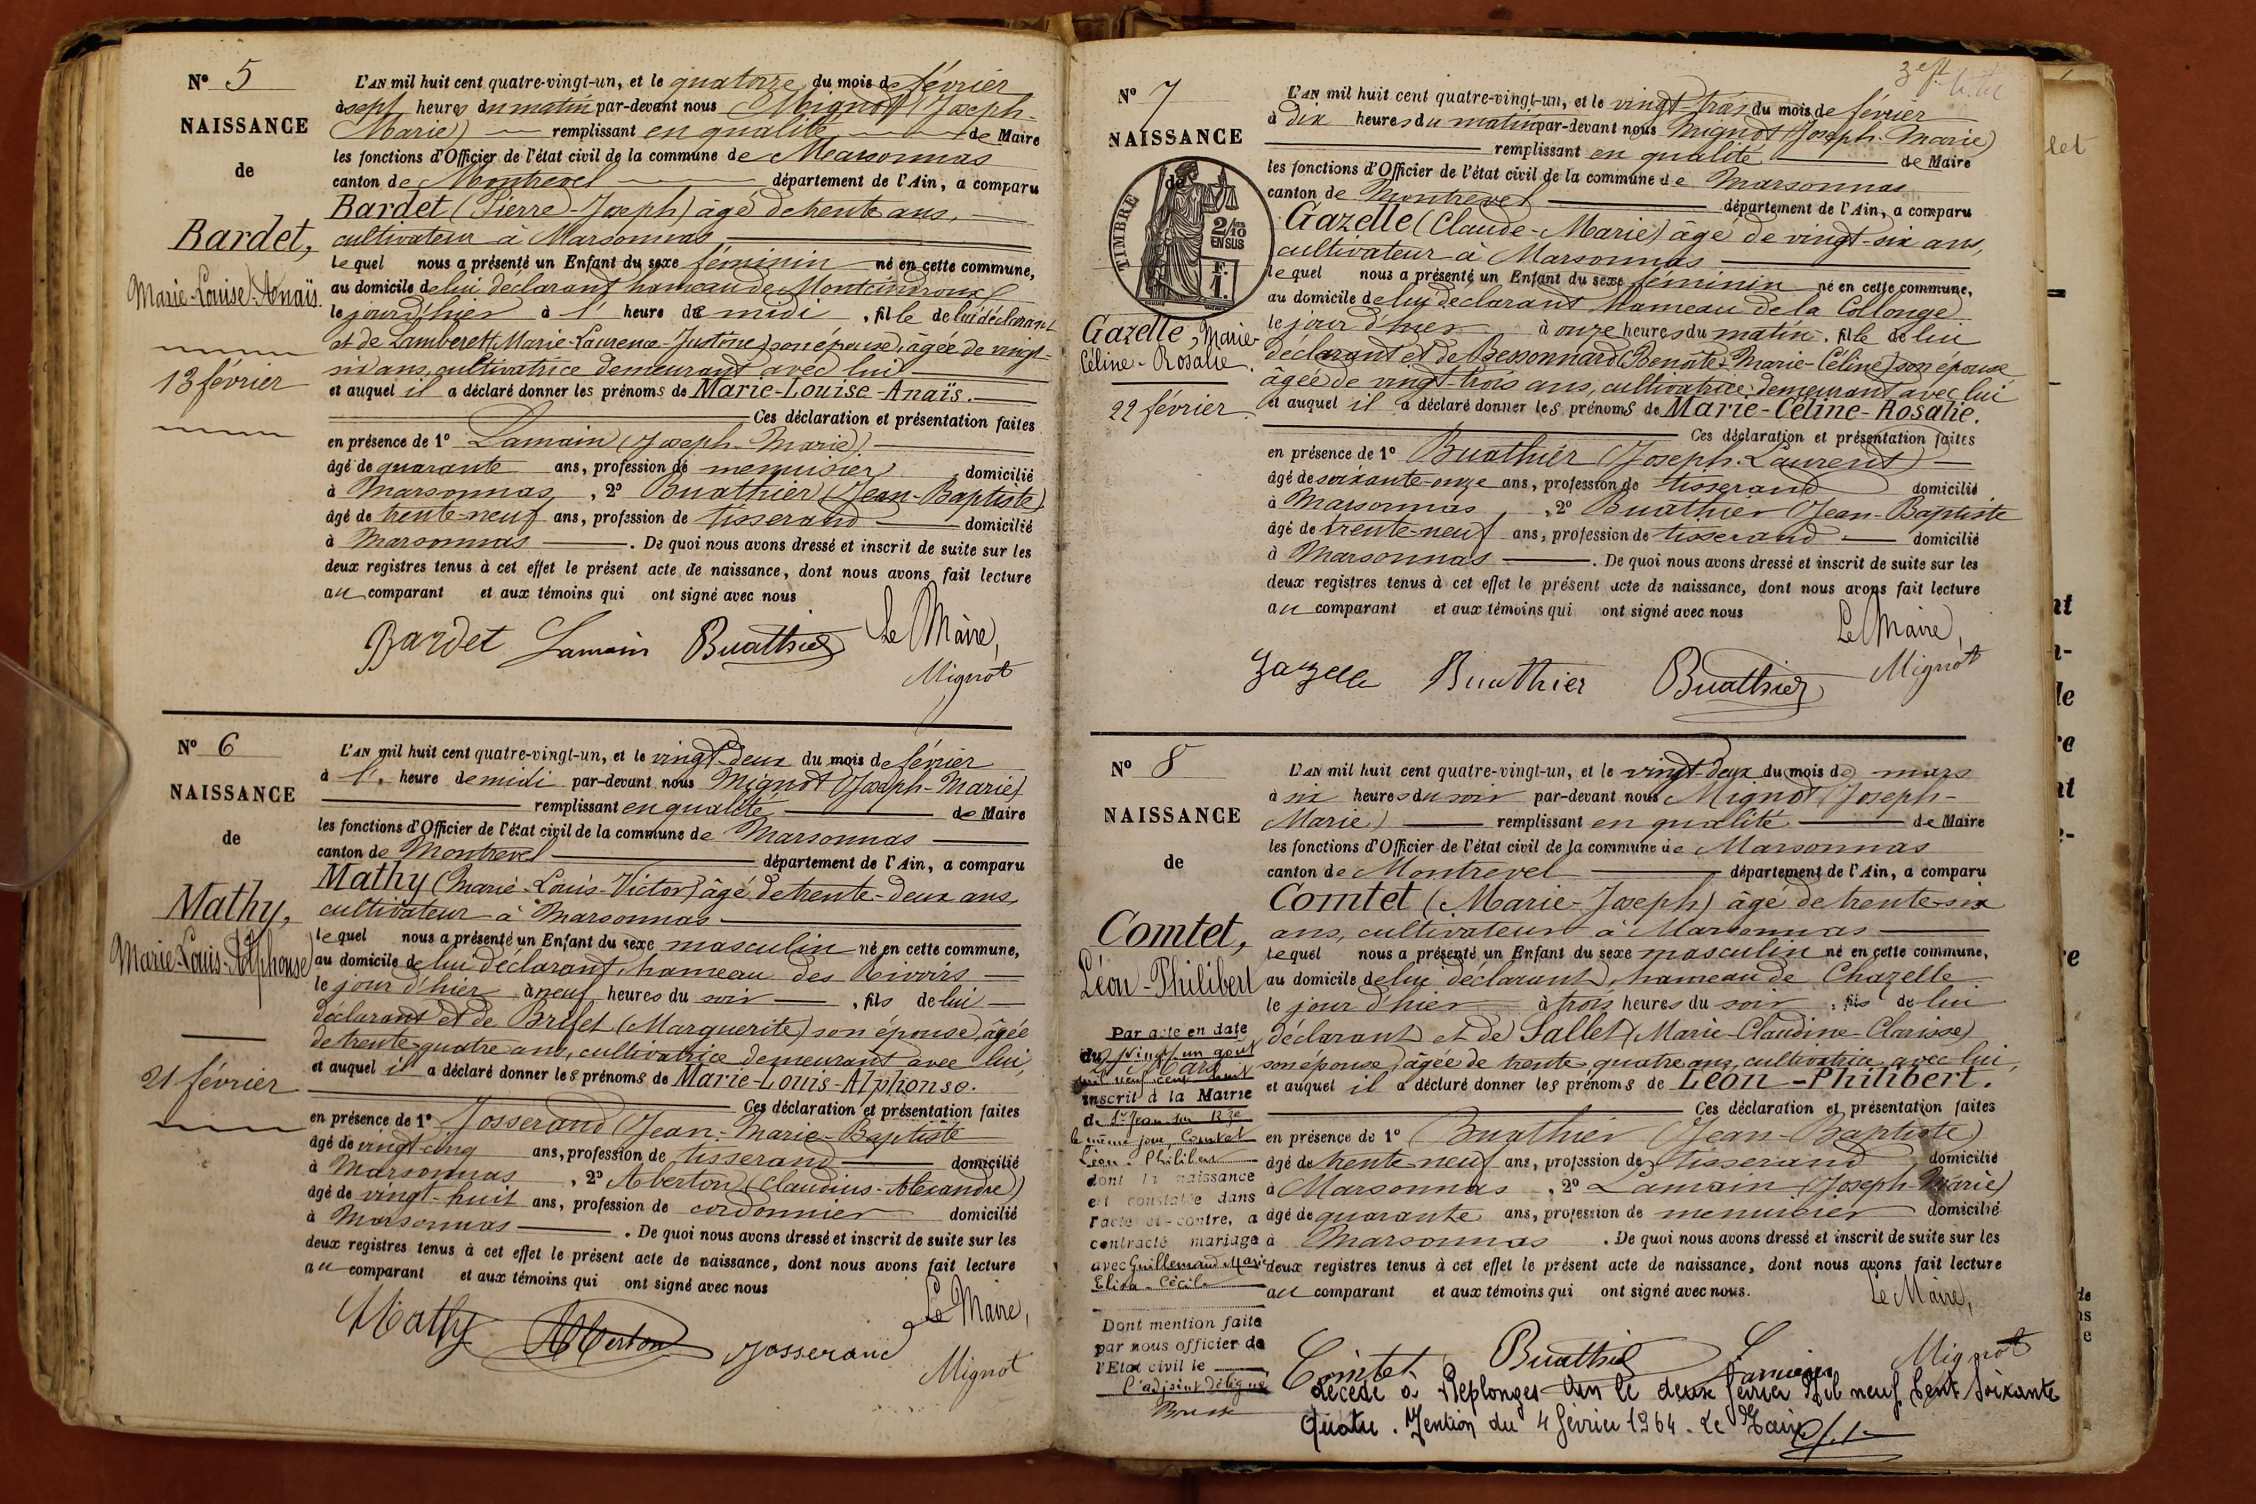 N° 5
NAISSANCE
de
Bardet,
Marie-Louise-Anaïs.
13 février
L'AN mil huit cent quatre-vingt-un, et le quatorze du mois de février
à sept heures du matin par-devant nous Mignot (Joseph-
Marie) remplissant en qualité de Maire
les fonctions d'Officier de l'état civil de la commune de Marsonnas
canton de Montrevel département de l'Ain, a comparu
Bardet (Pierre-Joseph) âgé de trente ans,
cultivateur à Marsonnas
lequel nous a présenté un Enfant du sexe féminin né en cette commune,
au domicile de lui déclarant hameau de
le jour d'hier à 1 heure de midi, fille de lui déclarant
et de Lamberet (Marie-Laurence-Justine) son épouse, âgée de vingt-
six ans, cultivatrice demeurant avec lui
et auquel il a déclaré donner les prénoms de Marie-Louise-Anaïs.
Ces déclaration et présentation faites
en présence de 1° Lamain (Joseph-Marie)
âgé de quarante ans, profession de menuisier domicilié
à Marsonnas, 2° Buathier (Jean-Baptiste)
âgé de trente-neuf ans, profession de tisserand domicilié
à Marsonnas. De quoi nous avons dressé et inscrit de suite sur les
deux registres tenus à cet effet le présent acte de naissance, dont nous avons fait lecture
au comparant et aux témoins qui ont signé avec nous
Bardet Lamain Buathier Le Maire,
Mignot
N° 6
NAISSANCE
de
Mathy,
Marie-Louis-Alphonse
21 février
L'AN mil huit cent quatre-vingt-un, et le vingt-deux du mois de février
à 1 heure de midi par-devant nous Mignot (Joseph-Marie)
remplissant en qualité de Maire
les fonctions d'Officier de l'état civil de la commune de Marsonnas
canton de Montrevel département de l'Ain, a comparu
Mathy (Marie-Louis-Victor) âgé de trente-deux ans,
cultivateur à Marsonnas
lequel nous a présenté un Enfant du sexe masculin né en cette commune,
au domicile de lui déclarant, hameau des
le jour d'hier à neuf heures du soir, fils de lui
déclarant et de Brifet (Marguerite) son épouse, âgée
de trente-quatre ans, cultivatrice demeurant avec lui,
et auquel il a déclaré donner les prénoms de Marie-Louis-Alphonse.
Ces déclaration et présentation faites
en présence de 1° Josserand (Jean-Marie-Baptiste
âgé de vingt-cinq ans, profession de tisserand domicilié
à Marsonnas, 2° Alberton (Claudius-Alexandre)
âgé de vingt-huit ans, profession de cordonnier domicilié
à Marsonnas. De quoi nous avons dressé et inscrit de suite sur les
deux registres tenus à cet effet le présent acte de naissance, dont nous avons fait lecture
au comparant et aux témoins qui ont signé avec nous
Le Maire,
Mathy Alberton Josserand
Mignot
N° 7
NAISSANCE
de
TIMBRE
2/10
EN SUS
F.
1.
Gazelle, Marie-
Céline-Rosalie.
22 février.
L'AN mil huit cent quatre-vingt-un, et le vingt-trois du mois de février
à dix heures du matin par-devant nous Mignot (Joseph-Marie)
remplissant en qualité de Maire
les fonctions d'Officier de l'état civil de la commune de Marsonnas
canton de Montrevel département de l'Ain, a comparu
Gazelle (Claude-Marie) âgé de vingt-six ans,
cultivateur à Marsonnas
lequel nous a présenté un Enfant du sexe féminin né en cette commune,
au domicile de lui déclarant hameau de la Collonge
le jour d'hier à onze heures du matin, fille de lui
déclarant et de Bessonnard (Benoîte-Marie-Céline) son épouse
âgée de vingt-trois ans, cultivatrice demeurant avec lui
et auquel il a déclaré donner les prénoms de Marie-Céline-Rosalie.
Ces déclaration et présentation faites
en présence de 1° Buathier (Joseph-Laurent)
âgé de soixante-onze ans, profession de tisserand domicilié
à Marsonnas, 2° Buathier Jean-Baptiste
âgé de trente-neuf ans, profession de tisserand domicilié
à Marsonnas. De quoi nous avons dressé et inscrit de suite sur les
deux registres tenus à cet effet le présent acte de naissance, dont nous avons fait lecture
au comparant et aux témoins qui ont signé avec nous
Le Maire,
Gazelle Buathier Buathier Mignot
N° 8
NAISSANCE
de
Comtet,
Léon-Philibert
Par acte en date
du vingt un août
mil neuf cent huit
inscrit à la Mairie
de St Jean sur
le même jour, Comtet
Léon-Philibert
dont la naissance
est constatée dans
l'acte ci-contre, a
contracté mariage
avec Guillemaud Marie
Elisa-Cécile
Dont mention faite
par nous officier de
l'Etat civil le
L'adjoint délégué
L'AN mil huit cent quatre-vingt-un, et le vingt-deux du mois de mars
à six heures du soir par-devant nous Mignot (Joseph-
Marie) remplissant en qualité de Maire
les fonctions d'Officier de l'état civil de la commune de Marsonnas
canton de Montrevel département de l'Ain, a comparu
Comtet (Marie-Joseph) âgé de trente-six
ans, cultivateur à Marsonnas
lequel nous a présenté un Enfant du sexe masculin né en cette commune,
au domicile de lui déclarant, hameau de Chazelle
le jour d'hier à trois heures du soir, fils de lui
déclarant et de Pallet (Marie-Claudine-Clarisse)
son épouse, âgée de trente-quatre ans, cultivatrice avec lui,
et auquel il a déclaré donner les prénoms de Léon-Philibert.
Ces déclaration et présentation faites
en présence de 1° Buathier (Jean-Baptiste)
âgé de trente-neuf ans, profession de tisserand domicilié
à Marsonnas, 2° Lamain (Joseph-Marie)
âgé de quarante ans, profession de menuisier domicilié
à Marsonnas. De quoi nous avons dressé et inscrit de suite sur les
deux registres tenus à cet effet le présent acte de naissance, dont nous avons fait lecture
au comparant et aux témoins qui ont signé avec nous.
Le Maire,
Comtet Buathier Lamain Mignot
décédé à Replonges Ain le deux février Mil neuf Cent Soixante
Quatre. Mention du 4 février 1964. Le Maire